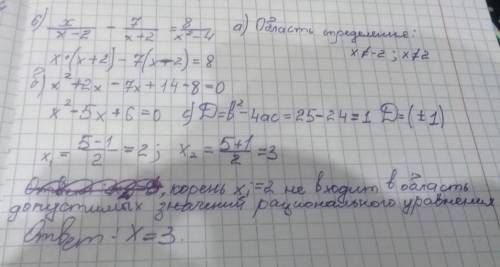 б) x/(x-2) - 7/(x+2) = 8/(x²-4) а) Область определения:
x≠-2; x≠2
x·(x+2)-7(x-2)=8
б) x²+2x-7x+14-8=0
x²-5x+6=0 с) D=b²-4ac=25-24=1 D=(±1)
x₁=(5-1)/2=2; x₂=(5+1)/2=3
корень x₁=2 не входит в область
допустимых значений рационального уравнения
Ответ - x=3.